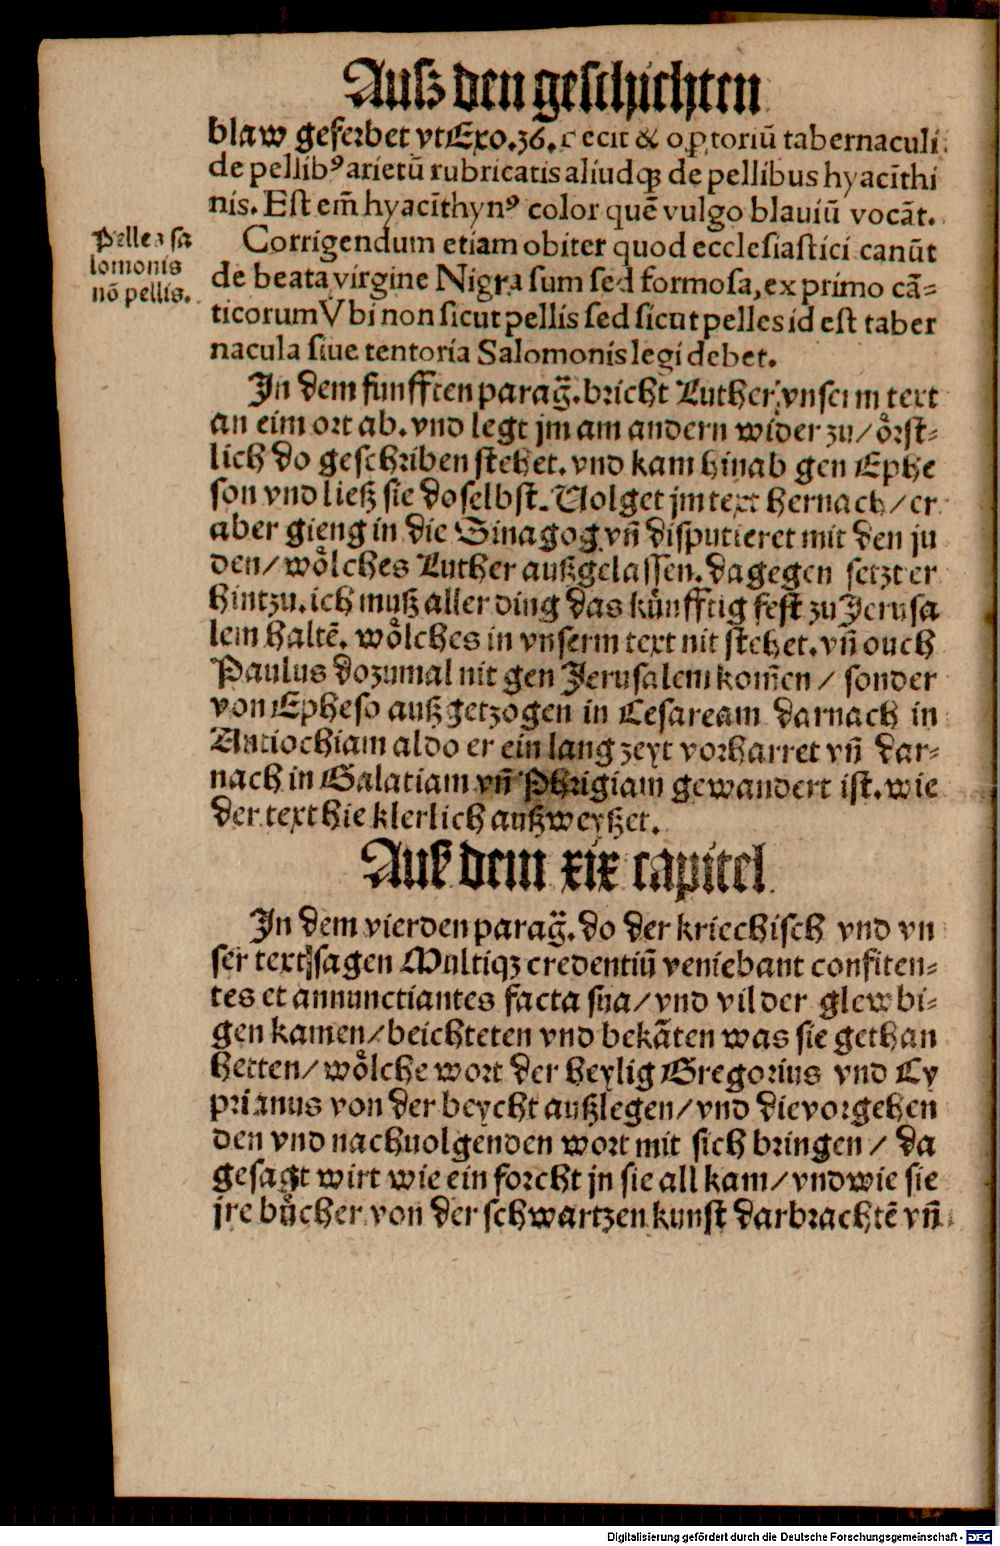 Auſz den geſchichten
blaw geferbet vt Exo.36. ecit & oꝑtoriū tabernaculi
de pellibꝰ arietū rubricatis aliudqꝫ de pellibus hyacīthi
nis. Eſt em̄ hyacīthynꝰ color quē vulgo blauiū vocāt.
Pelles ſa
lomonis
nō pellis.
Corrigendum etiam obiter quod eccleſiaſtici canūt
de beata virgine Nigra ſum ſed formoſa, ex primo cā⸗
ticorum Vbi non ſicut pellis ſed ſicut pelles id eſt taber
nacula ſiue tentoria Salomonis legi debet.
In dem funfften parag̃. bricht Luther vnſerm text
an eim ort ab. vnd legt jm am andern wider zu/ oͤrſt⸗
lich do geſchriben ſtehet. vnd kam hinab gen Ephe
ſon vnd ließ ſie doſelbſt. Volget jm text hernach/ er
aber gieng in die Sinagog vn̄ diſputieret mit den ju
den/ woͤlches Luther außgelaſſen. dagegen ſetzt er
hintzu. ich muß aller ding das kuͤnfftig feſt zu Jeruſa
lem haltē. woͤlches in vnſerm text nit ſtehet. vn̄ ouch
Paulus dozumal nit gen Jeruſalem kom̄en/ ſonder
von Epheſo auß getzogen in Ceſaream darnach in
Antiochiam aldo er ein lang zeyt vorharret vn̄ dar⸗
nach in Galatiam vn̄ Phrigiam gewandert iſt. wie
der text hie klerlich außweyßet.
Auß dem xix capitel
In dem vierden parag̃. do der kriechiſch vnd vn
ſer text ſagen Multiqꝫ credentiū veniebant confiten⸗
tes et annunctiantes facta ſua/ vnd vil der glewbi⸗
gen kamen/ beichteten vnd bekāten was ſie gethan
hetten/ woͤlche wort der heylig Gregorius vnd Cy
prianus von der beycht außlegen/ vnd die vorgehen
den vnd nachuolgenden wort mit ſich bringen/ da
geſagt wirt wie ein forcht jn ſie all kam/ vnd wie ſie
jre buͤcher von der ſchwartzen kunſt darbrachtē vn̄
Digitalisierung gefördert durch die Deutsche Forschungsgemeinschaft - DFG